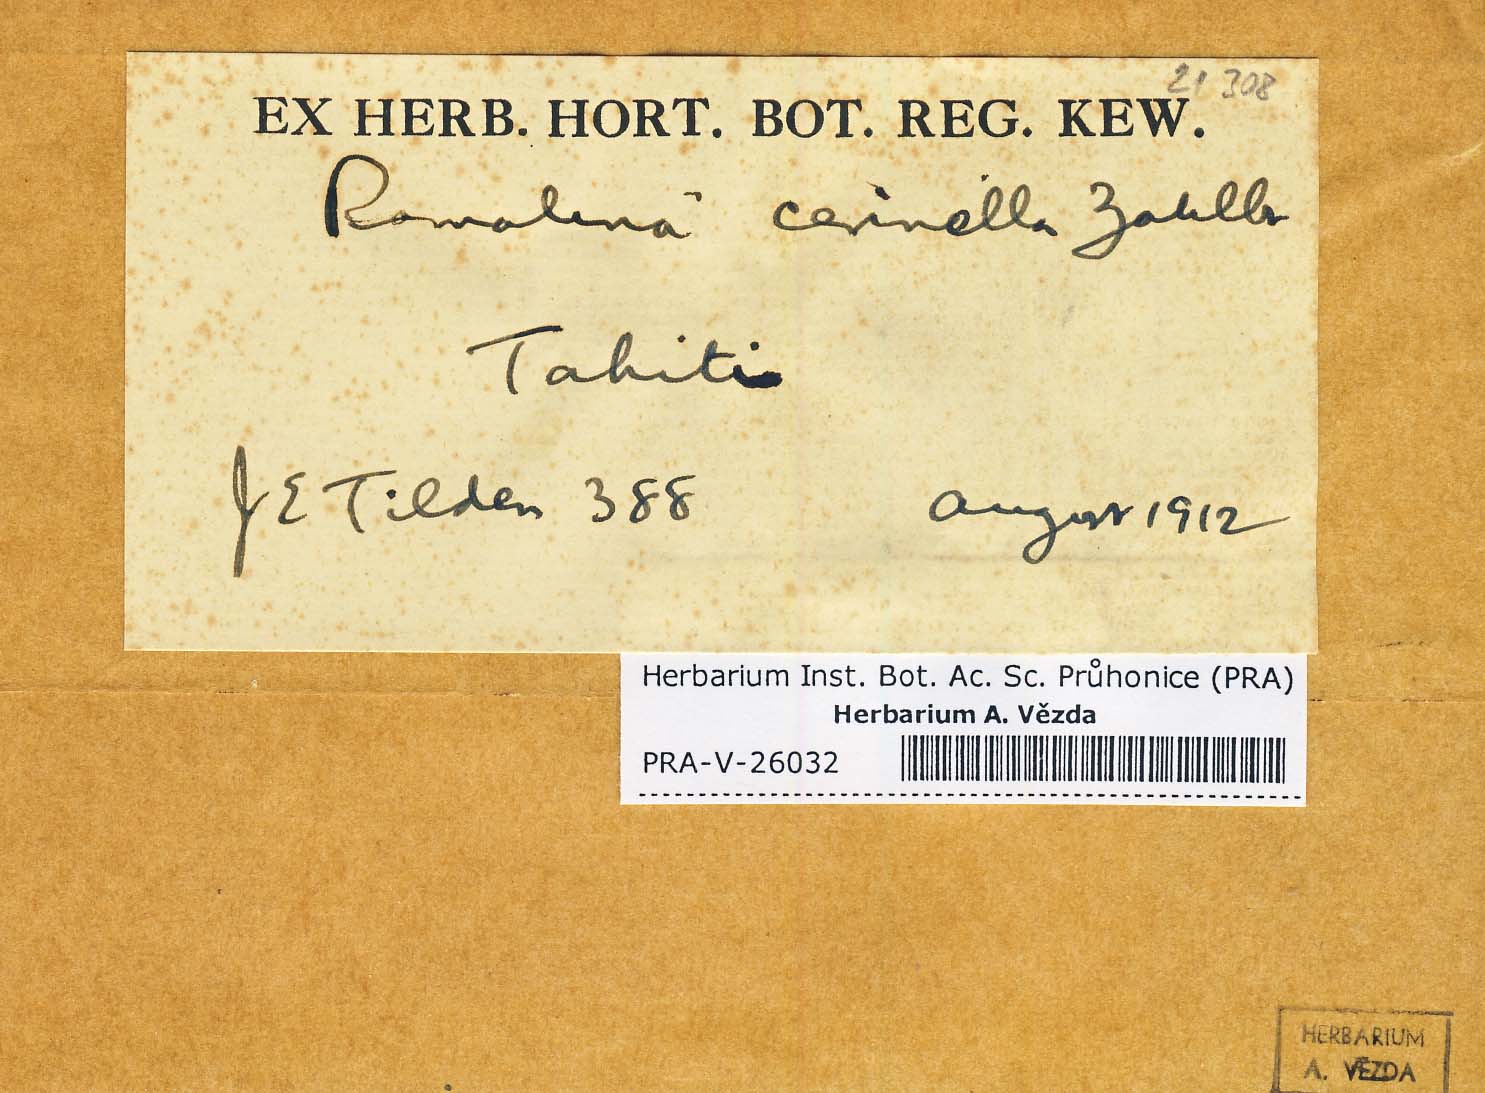 21 308
EX HERB. HORT. BOT. REG. KEW.
Ramalina cerinella Zahlbr
Tahiti
J E Tilden 388 August 1912
Herbarium Inst. Bot. Ac. Sc. Průhonice (PRA)
Herbarium A. Vězda
PRA-V-26032
HERBARIUM
A. VĚZDA